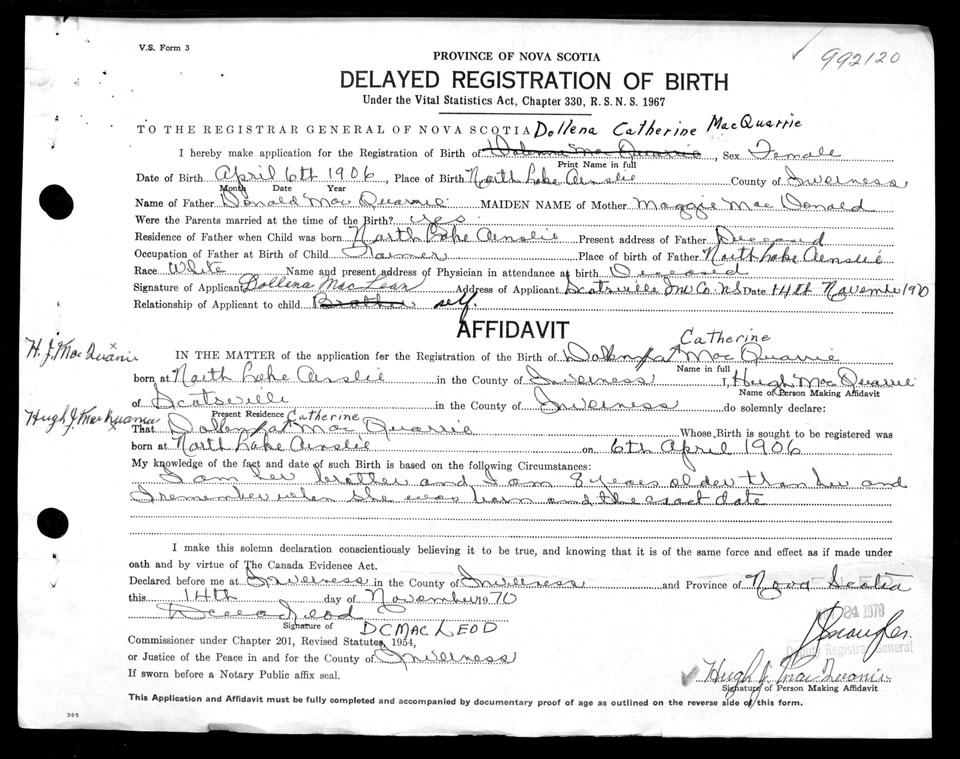 V.S. Form 3
992120
PROVINCE OF NOVA SCOTIA
DELAYED REGISTRATION OF BIRTH
Under the Vital Statistics Act, Chapter 330, R.S.N.S. 1967
TO THE REGISTRAR GENERAL OF NOVA SCOTIA Dollena Catherine MacQuarrie
I hereby make application for the Registration of Birth of Dolena Mac Quarrie, Sex Female
Print Name in full
Date of Birth April 6th 1906, Place of Birth North Lake Ainslie County of Inverness
Month Date Year
Name of Father Donald Mac Quarrie MAIDEN NAME of Mother Maggie Mac Donald
Were the Parents married at the time of the Birth? yes
Residence of Father when Child was born North Lake Ainslie Present address of Father Deceased
Occupation of Father at Birth of Child Farmer Place of birth of Father North Lake Ainslie
Race White Name and present address of Physician in attendance at birth Deceased
Signature of Applicant Dollena MacLean Address of Applicant Scotsville Inv Co. N.S Date 14th November 1970
Relationship of Applicant to child Brother self.
AFFIDAVIT
Catherine
H. J. Mac Quarrie
IN THE MATTER of the application for the Registration of the Birth of Dolena Mac Quarrie
Name in full
born at North Lake Ainslie in the County of Inverness I, Hugh Mac Quarrie
Name of Person Making Affidavit
of Scotsville in the County of Inverness do solemnly declare:
Present Residence Catherine
Hugh J. Mac Quarrie
That Dolena Mac Quarrie Whose Birth is sought to be registered was
born at North Lake Ainslie on 6th April 1906
My knowledge of the fact and date of such Birth is based on the following Circumstances:
I am her brother and I am 8 years older than her and
I remember when she was born and the exact date
I make this solemn declaration conscientiously believing it to be true, and knowing that it is of the same force and effect as if made under
oath and by virtue of The Canada Evidence Act.
Declared before me at Inverness in the County of Inverness and Province of Nova Scotia
this 14th day of November 1970
24 1970
D C MacLeod
Signature of D C MAC LEOD
Deputy Registrar General
Commissioner under Chapter 201, Revised Statutes, 1954,
or Justice of the Peace in and for the County of Inverness
Hugh J. Mac Quarrie
If sworn before a Notary Public affix seal.
Signature of Person Making Affidavit
This Application and Affidavit must be fully completed and accompanied by documentary proof of age as outlined on the reverse side of this form.
305